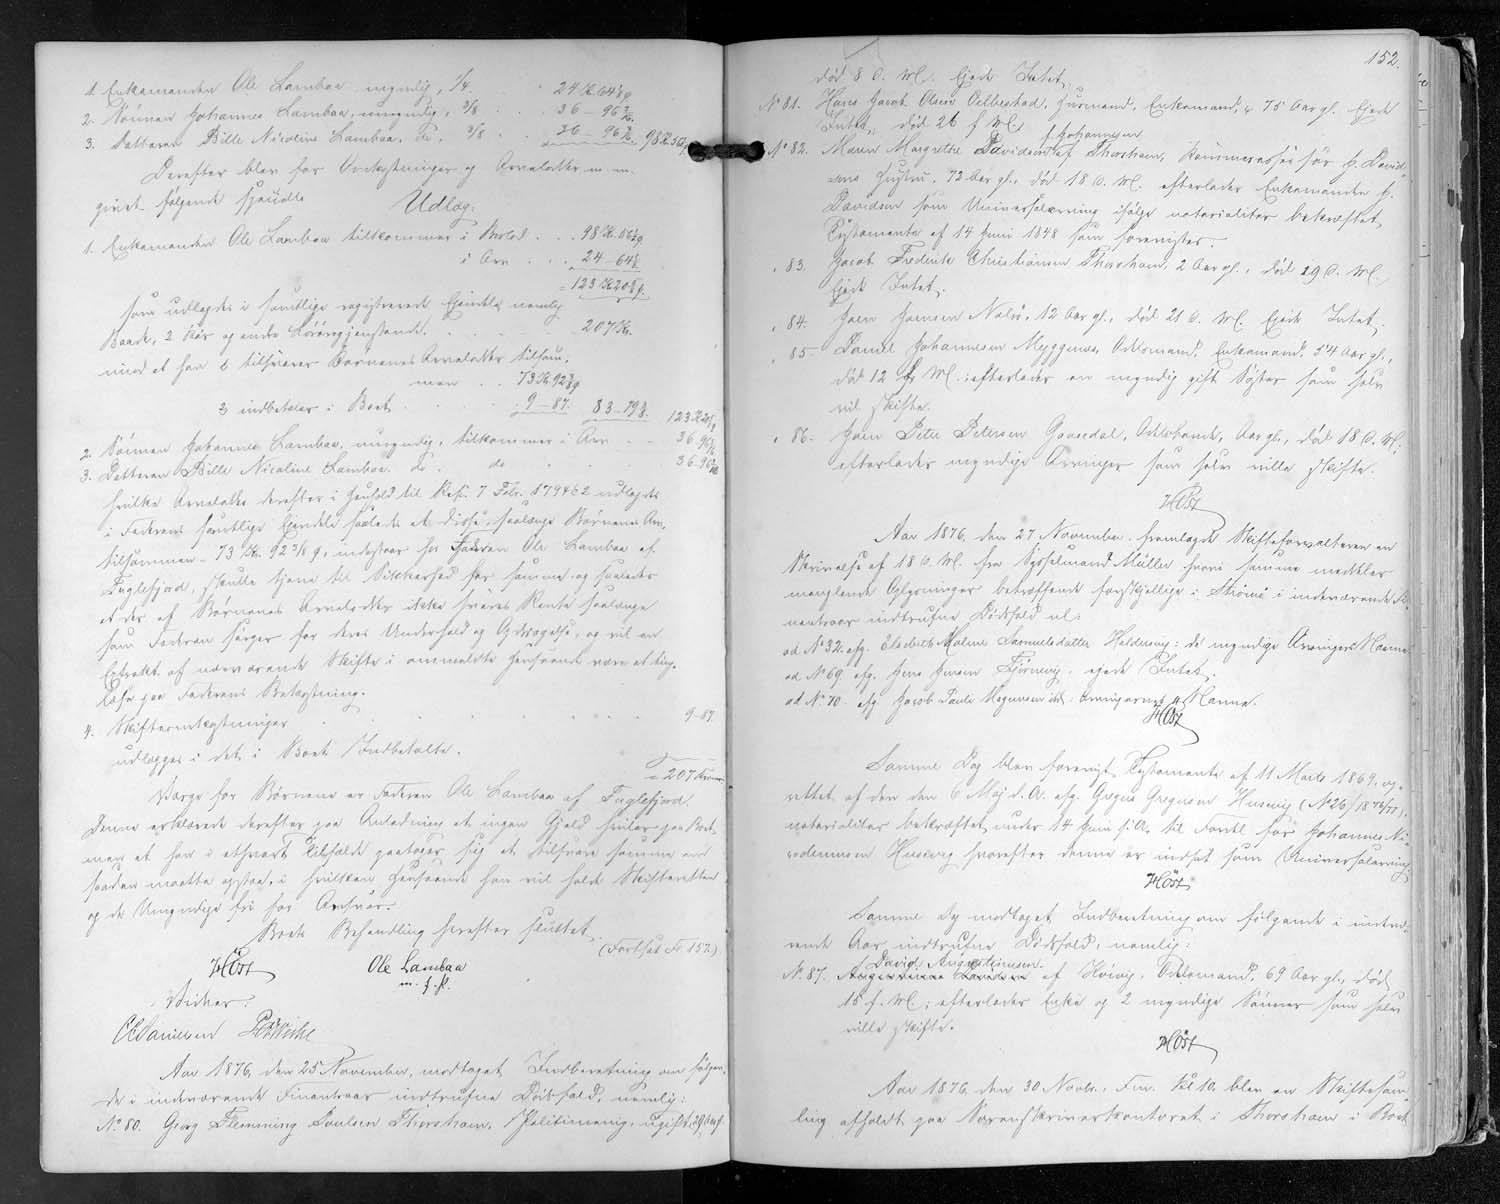 1. Enkemanden Ole Lambaa, myndig, 1/4 . . 24 Kr. 64 1/8 Ø
2. Sønnen Johannes Lambaa, umyndig, 3/8 . . 36 – 96 3/16
3. Datteren Bille Nicoline Lambaa, do. 3/8 . . 36 – 96 98 Kr. 56
Derefter blev for Omkostninger og Arvelodder m. m.
givet følgende specielle Udlæg:
1. Enkemanden Ole Lambaa tilkommer i Boslod . . 98 Kr. 56 Ø
i Arv . . . 24 – 64
= 123 Kr. 20 Ø
som udlægges i samtlige registrerede Eiendele nemlig
Baade, 2 Køer og andre Løsøregjenstande . . . . 207 Kr.
mod at han tilsvarer Børnenes Arvelodder tilsam-
men . . 73 Kr. 92 Ø
indbetaler i Boet . . . . 9 – 87. 83 – 79 123 Kr. 20
2. Sønnen Johannes Lambaa, umyndig, tilkommer i Arv . . 36. 96
3. Datteren Bille Nicoline Lambaa. do. do . . . . 36 96
hvilke Arvelodder derefter i Henhold til Resn. 7 Febr. 1794 § 2 udlægges
i Faderens samtlige Eiendele saaledes at disse, saalænge Børnenes Arv,
tilsammen 73 Kr. 92 Ø, indestaar hos Faderen Ole Lambaa af
Fuglefjord, skulle tjene til Sikkerhed for samme og saaledes
at der af Børnenes Arvelodder ikke svares Rente saalænge
som Faderen sørger for deres Underhold og Opdragelse, og vil en
Extrakt af nærværende Skifte i anmeldte Henseende være at thing-
læse paa Faderens Bekostning.
4. Skifteomkostninger . . . . . . . 9 – 87.
udlægges i det i Boet Indbetalte.
= 207 Kroner
Værge for Børnene er Faderen Ole Lambaa af Fuglefjord.
Denne erklærede derefter paa Anledning at ingen Gjæld hviler paa Boet
men at han i ethvert Tilfælde paatager sig at tilsvare samme om
saadan maatte opstaa, i hvilken Henseende han vil holde Skifteretten
og de Umyndige fri for Ansvar.
Boets Behandling herefter sluttet.
(Fortsat Fo. 157.)
HØst Ole Lambaa
m. f. P.
Vidner:
Aar 1876, den 25 November, modtaget Indberetning om følgen-
de i indeværende Finantsaar indtrufne Dødsfald, nemlig:
No 80. Georg Flemming Poulsen Thorshavn, ugift, 29 Aar gl.
152.
død 8 d. M. Ejede Intet.
No 81. Hans Jacob Olsen Velbestad, Husmand, Enkemand, 75 Aar gl. Ejede
Intet, død 26 f. M. f. Johannesen
No 82. Maren Margrethe Davidsen af Thorshavn, Davids-
sens Hustru, 72 Aar gl., død 18 d. M. efterlader Enkemanden
Davidsen som Universalarving ifølge notorialiter bekræftet
Testamente af 14 Juni 1848 som forevistes.
" 83. Jacob Frederik Christiansen Thorshavn, 2 Aar gl., død 19 d. M.
Ejede Intet.
" 84. Joen Joensen Nolsø, 12 Aar gl., død 21 d. M. Ejede Intet.
" 85. Daniel Johannesen Myggenæs, Odelsmand, Enkemand, 54 Aar gl.,
død 12 f. M.; efterlader en myndig gift Søster som selv
vil skifte.
" 86. Joen Peter Petersen Gaasedal, Aar gl., død 18 d. M.;
efterlader myndige Arvinger som selv ville skifte.
HØst
Aar 1876, den 27 November fremlagde Skifteforvalteren en
Skrivelse af 18 d. M. fra Sysselmand Müller hvori samme meddeler
manglende Oplysninger betræffende forskjellige i Strømø i indeværende Fi-
nantsaar indtrufne Dødsfald nl:
ad No 32. afg. Elsebeth Malene Samuelsdatter Haldersvig: de myndige Arvingers Navne
ad No 69. afg. Jens Jensen Tjørnevig. ejede Intet.
ad No 70. afg. Jacob Paule Magnussen ibd: Arvingernes Navne.
HØst
Samme Dag blev forevist Testamente af 11 Marts 1869, op-
rettet af den den 6 Maj d. A. afg. Gregers Gregersen Husevig (No 26/1876/77),
notarialiter bekræftet under 14 Juni s. A. til Fordel for Johannes Ni-
codemusen Husevig hvorefter denne er indsat som Universalarving.
HØst
Samme Dag modtaget Indberetning om følgende i indevæ-
rende Aar indtrufne Dødsfald, nemlig:
David Augustinusen
No 87. Augustinus Davidsen af Hvivig, Odelsmand, 69 Aar gl., død
15 f. M.; efterlader Enke og 2 myndige Sønner som selv
ville skifte.
HØst
Aar 1876 den 30 Novbr. Fm. Kl 10. blev en Skiftesam-
ling afholdt paa Sorenskriverkontoret i Thorshavn i Boet